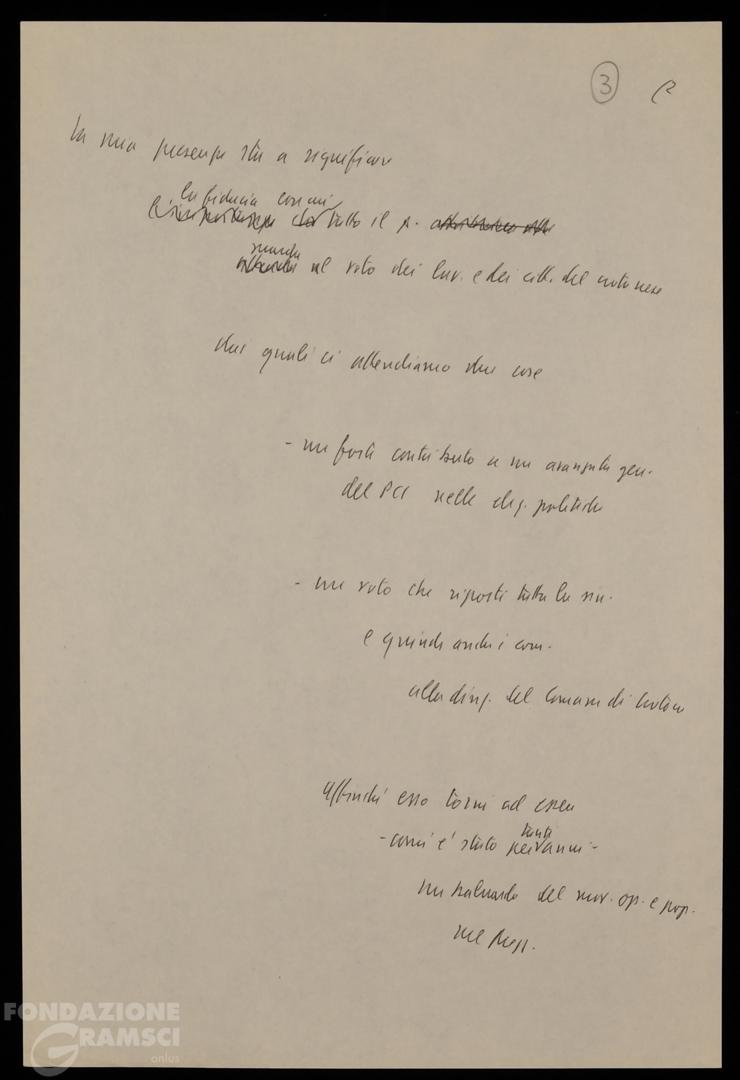 3
La mia presenza sta a significare
la fiducia con cui
tutto il p.
guarda
al voto dei lav. e dei citt. del crotonese
dai quali ci attendiamo due cose
- un forte contributo a un avanzata gen.
del PCI nelle elez. politiche
- un voto che riporti tutta la sin.
e quindi anche i com.
alla direz. del Comune di Crotone
affinché esso torni ad essere
- com'è stato per tanti anni -
un baluardo del mov. op. e pop.
nel Mezz.
FONDAZIONE
GRAMSCI
onlus